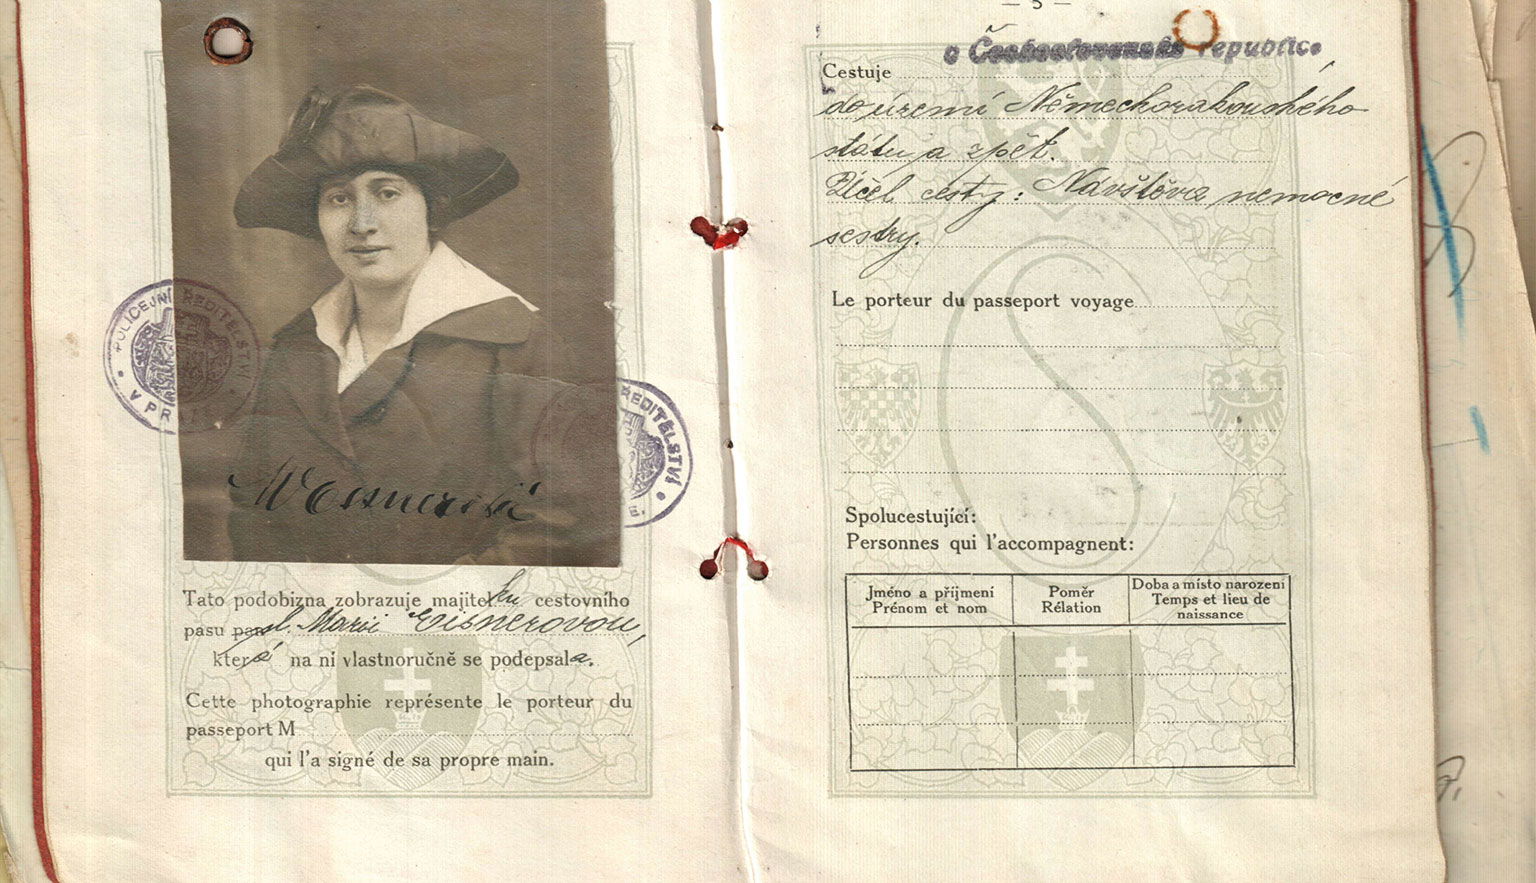 POLICEJNÍ ŘEDITELSTVÍ
V PR
ŘEDITELSTVÍ
E.
M Eisnerová
Tato podobizna zobrazuje majitelku cestovního
pasu pana sl. Marii Eisnerovou,
která na ní vlastnoručně se podepsala.
Cette photographie représente le porteur du
passeport M
qui l'a signé de sa propre main.
— 5 —
o Československé republice
Cestuje
do území Německorakouského
státu a zpět.
Účel cesty: Návštěva nemocné
sestry.
Le porteur du passeport voyage
Spolucestující:
Personnes qui l'accompagnent:
Jméno a příjmení
Prénom et nom
Poměr
Rélation
Doba a místo narození
Temps et lieu de
naissance